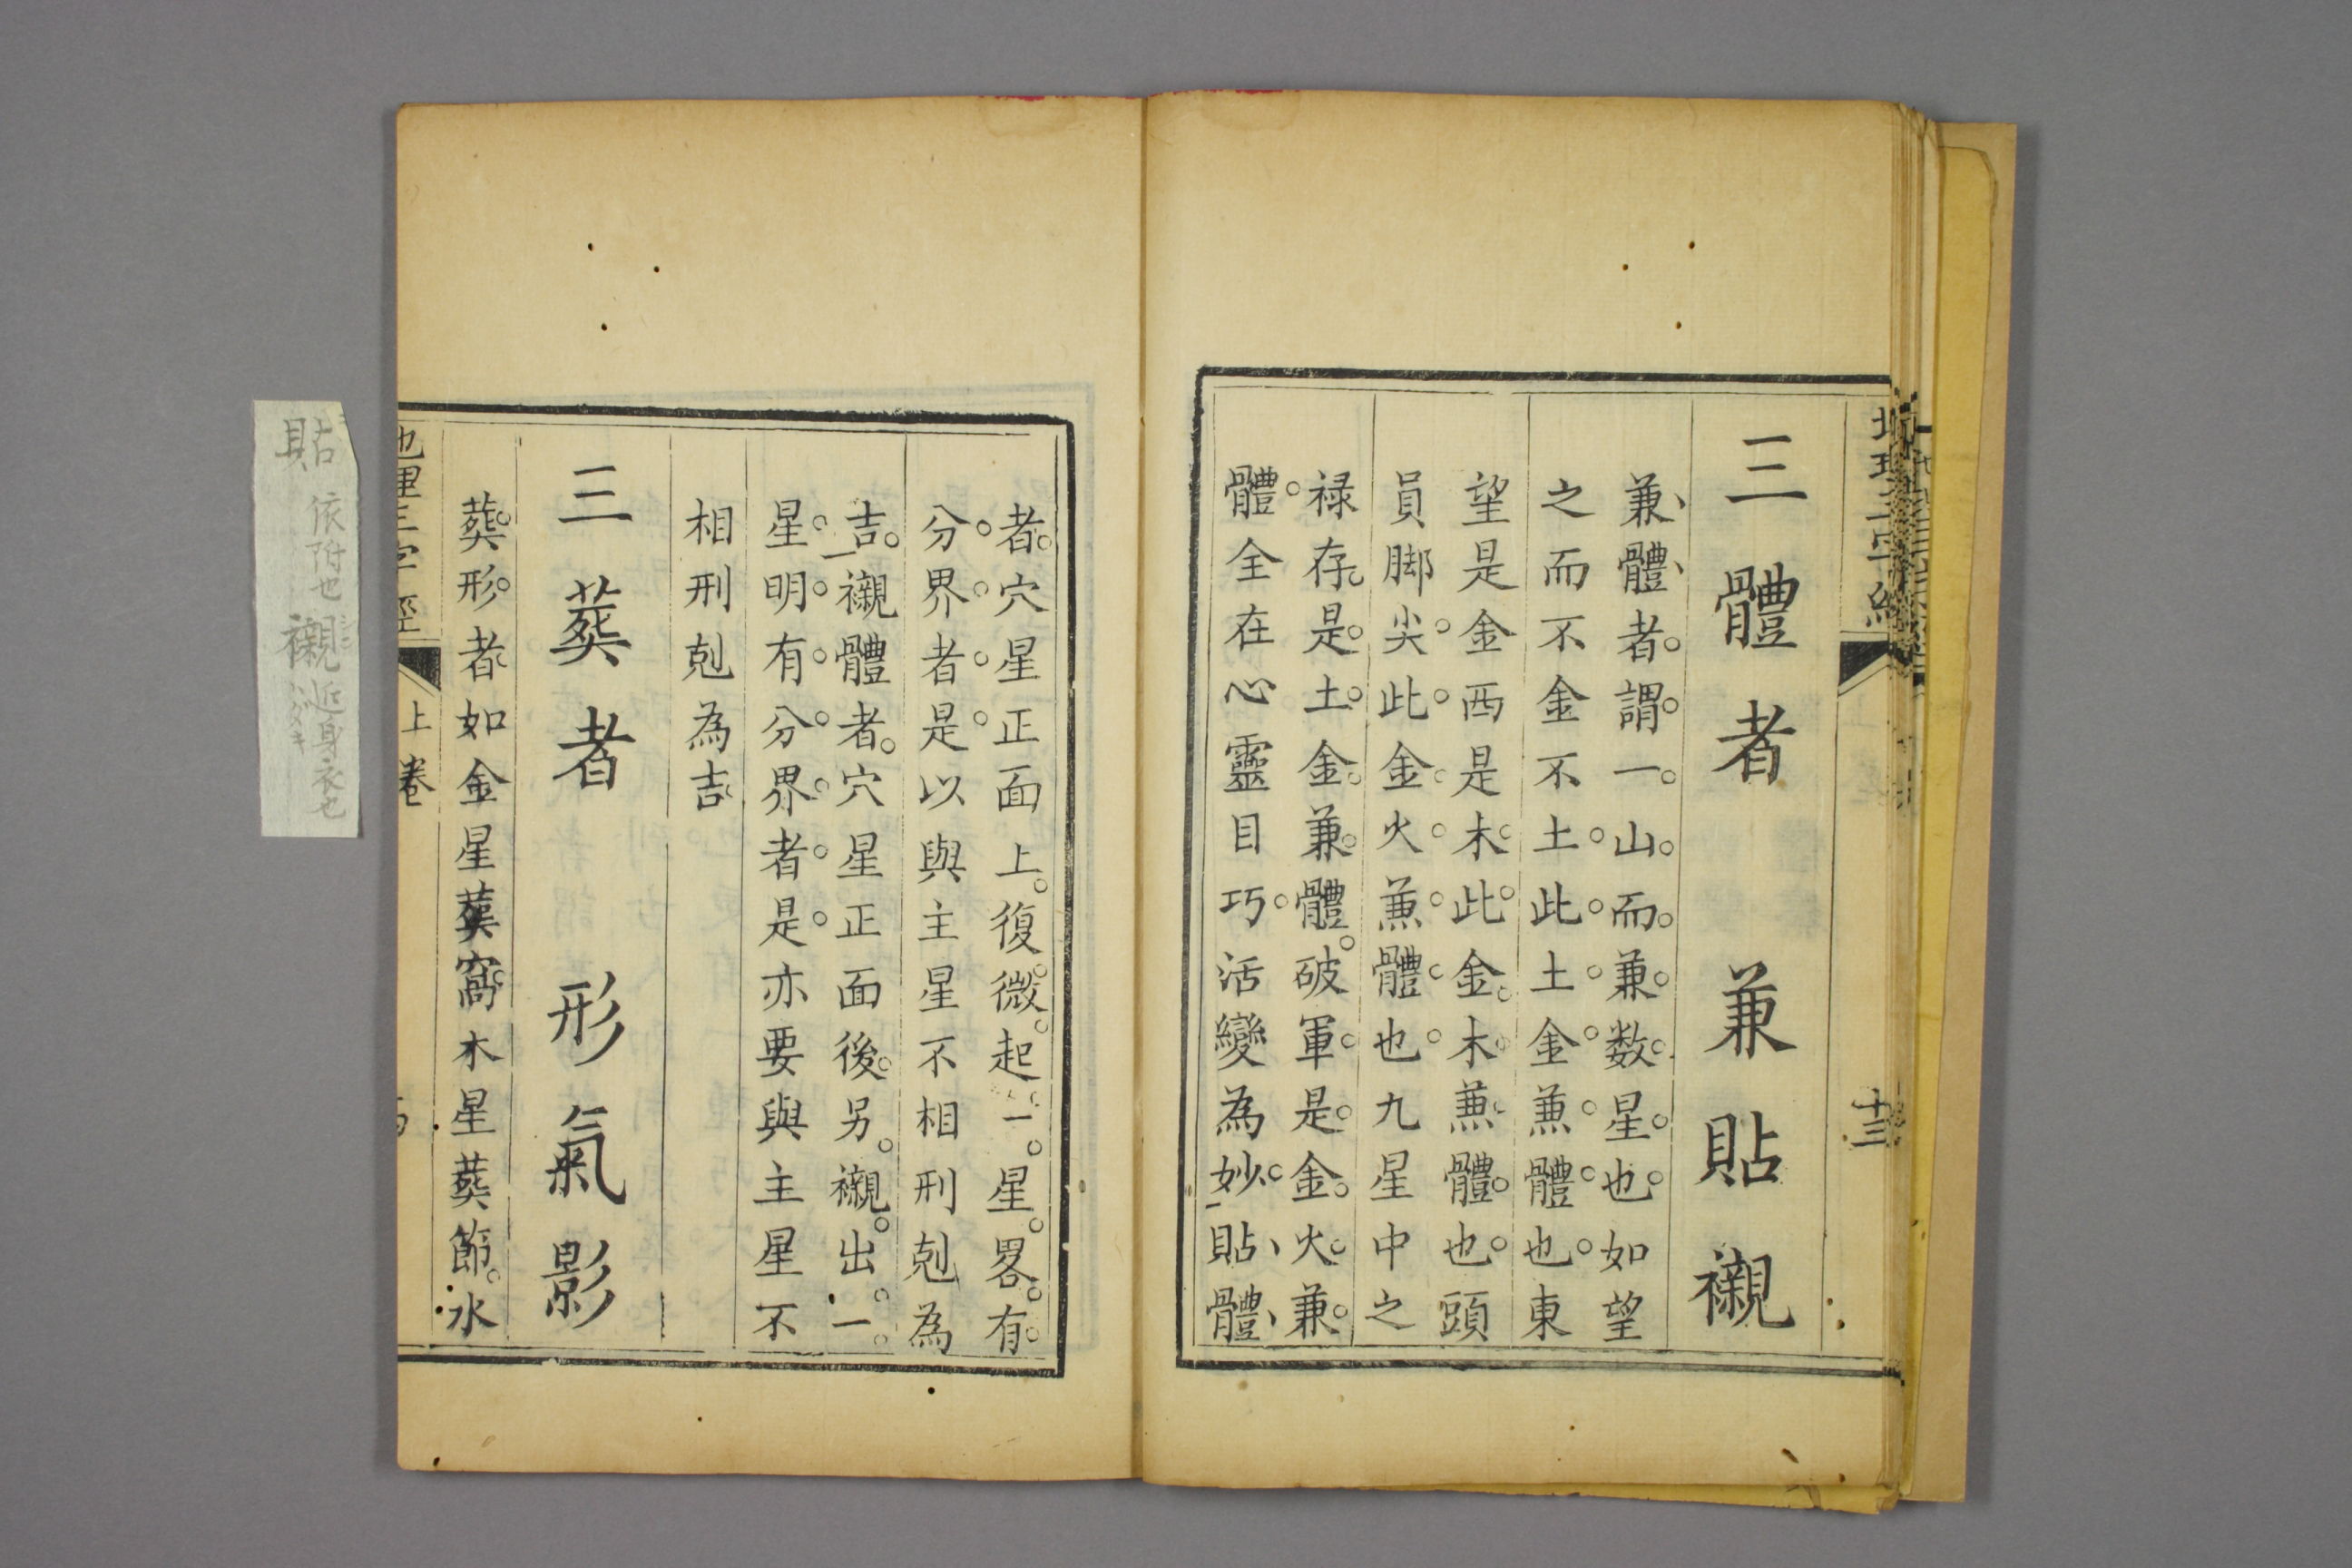 三體者 兼貼襯
兼體者謂一山而兼数星也如望
之而不金不土此土金兼體也東
望是金西是木此金木兼體也頭
員脚尖此金火兼體也九星中之
禄存是土金兼體破軍是金火兼
體全在心靈目巧活變為妙貼體
十三
者穴星正面上復微起一星畧有
分界者是以與主星不相刑剋為
吉襯體者穴星正面後另襯出一
星明有分界者是亦要與主星不
相刑剋為吉
三葬者 形氣影
葬形者如金星葬窩木星葬節水
地理三字經 上卷
貼 依附也 襯 近身衣也